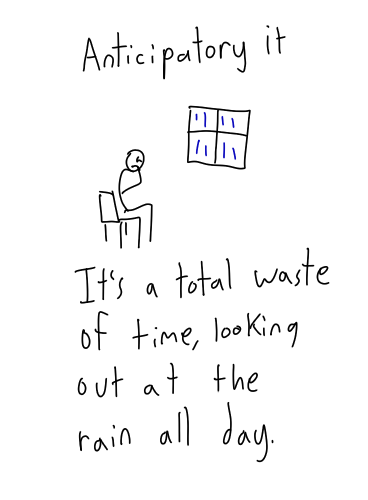 Anticipatory it
It's a total waste
of time, looking
out at the
rain all day.